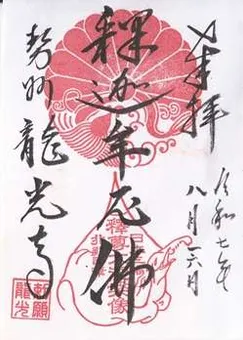 奉拝
令和七年
八月十六日
釋迦牟尼佛
勢州 龍光寺
勅願
龍光